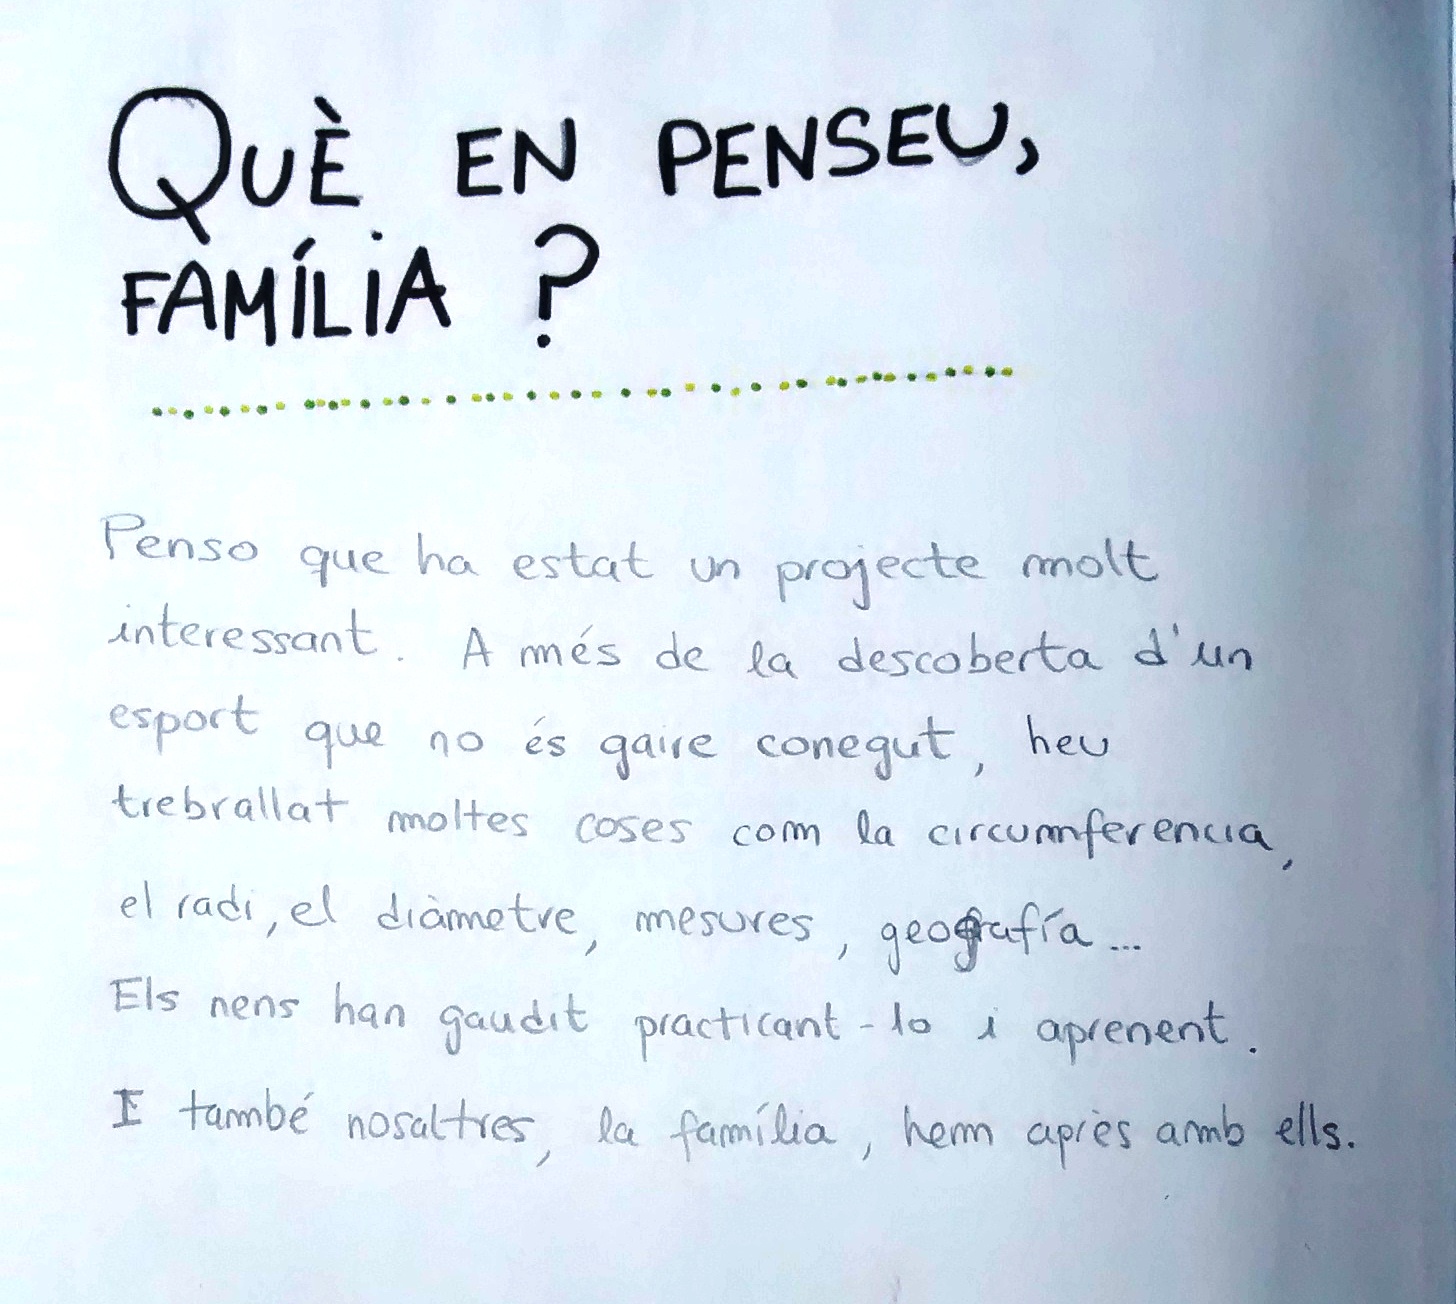 QUÈ EN PENSEU,
FAMÍLiA ?
Penso que ha estat un projecte molt
interessant. A més de la descoberta d'un
esport que no és gaire conegut, heu
trebrallat moltes coses com la circumferencia,
el radi, el diàmetre, mesures, geografía...
Els nens han gaudit practicant-lo i aprenent.
I també nosaltres, la família, hem après amb ells.